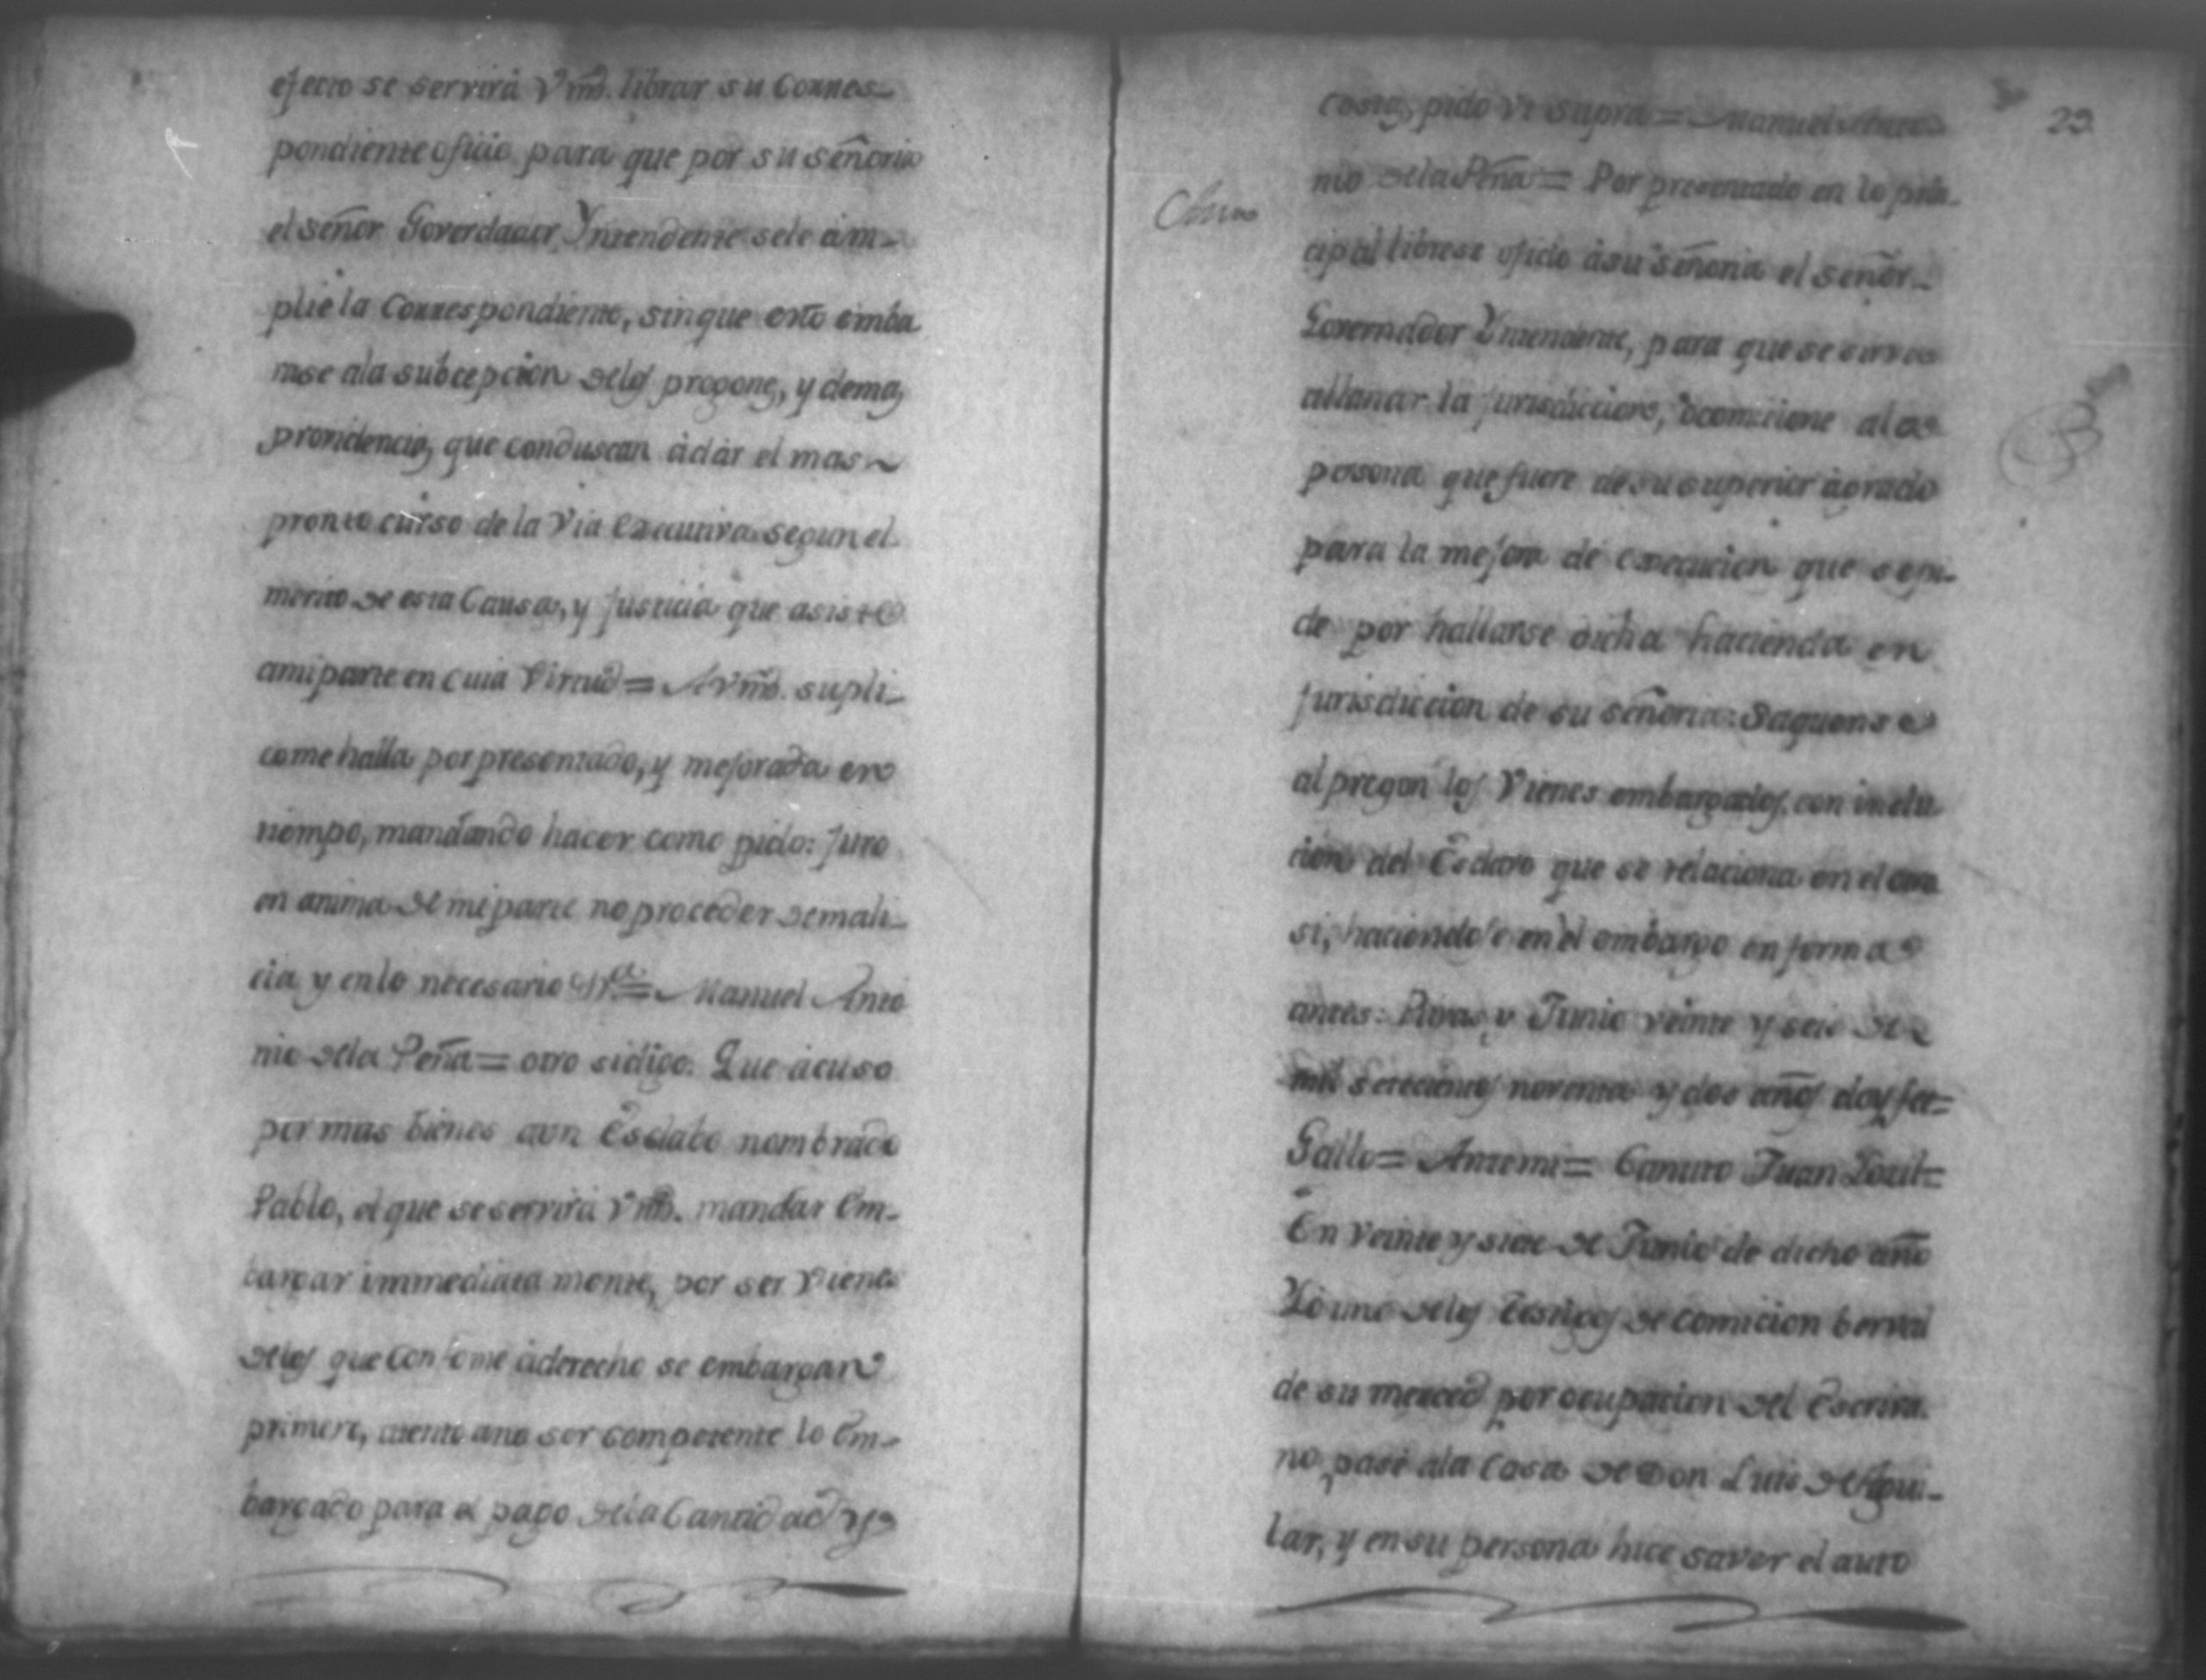 efecto se servirá Vmd. librar su Corres-
pondiente oficio para que por su señoria
el señor Goverdador Yntendente sele am-
plie la Correspondiente, sin que esto emba
rase ala subcepcion delos pregones, y demas
providencias, que conduscan ádár el mas
pronto curso de la Via Executiva segun el
merito de esta Causa, y justicia que asiste
ami parte en cuia Virtud = A Vmd. supli-
co me halla por presentado, y mejorada en
tiempo, mandando hacer como pido: juro
en anima de mi parte no proceder demali-
cia y enlo necesario &ª = Manuel Anto
nio dela Peña = otro sidigo. Que acuso
por mas bienes aun Esclabo nombrado
Pablo, el que se servirá Vmd. mandar Em-
bargar immediatamente, por ser Vienes
delos que confome áderecho se embargan
primero, atento ano ser competente lo Em-
bargado para el pago dela Cantidad y
costas, pido Vt supra = Manuel Anto
29
nio dela Peña = Por presentado en lo prin-
cipal librese oficio ásu señoria el señor
Governador Yntendente, para que se sirva
allanar la jurisdiccion, ócomicione ala
persona que fuere de su superior agrado
para la mejora de execucion que se pi-
de por hallarse dicha hacienda en
jurisdiccion de su señoria: Saquense
al pregon los Vienes embargados, con inclu
cion del Esclavo que se relaciona en el otro
si, haciendose en el embargo en forma
antes: Rivas, y Junio veinte y seis de
mil setecientos noventa y dos años doy feé=
Gallo = Antemi = Canuto Juan
En Veinte y siete de Junio de dicho año
Yo uno delos testigos de comicion berval
de su merced por ocupacion del Escriva
no, pasé ala Casa de Don Luis de Agui-
lar, y en su persona hice saver el auto